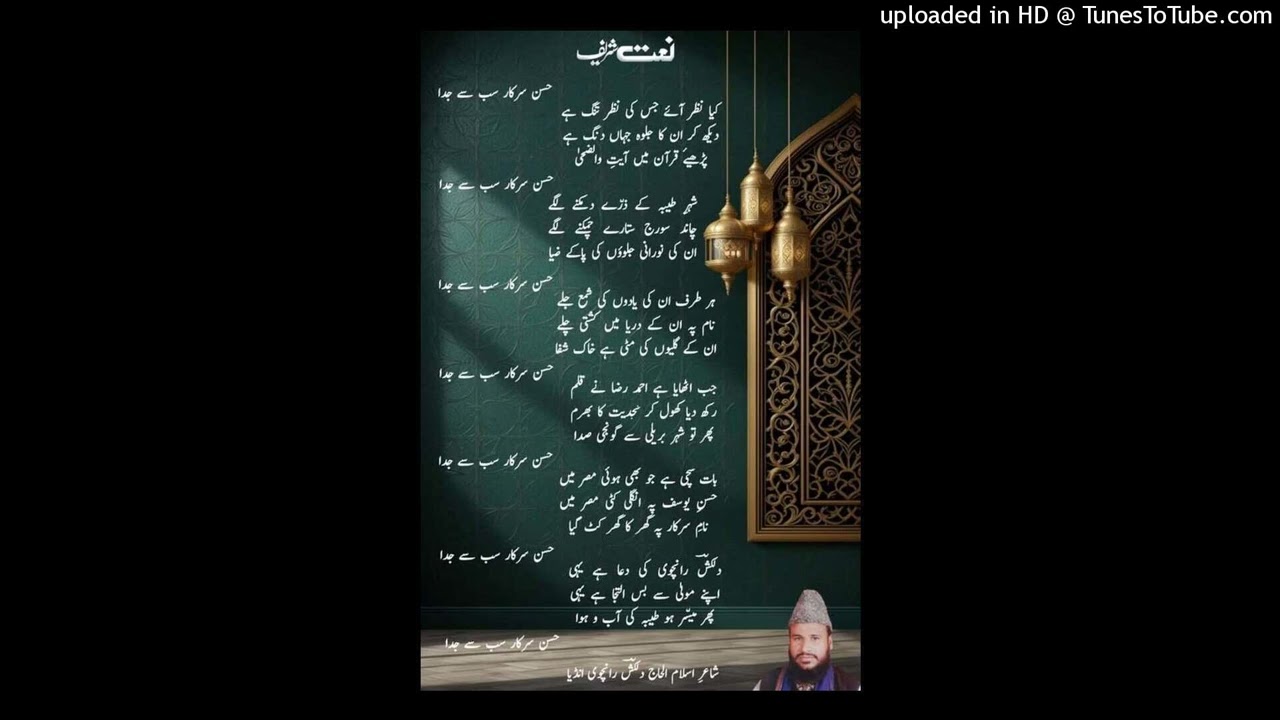 uploaded in HD @ TunesToTube.com
نعت شریف
حسن سرکار سب سے جدا
کیا نظر آئے جس کی نظر تنگ ہے
دیکھ کر ان کا جلوہ جہاں دنگ ہے
پڑھیے قرآن میں آیتِ والضحیٰ
حسن سرکار سب سے جدا
شہرِ طیبہ کے ذرّے دمکنے لگے
چاند سورج ستارے چمکنے لگے
ان کی نورانی جلوؤں کی پاکے ضیا
حسن سرکار سب سے جدا
ہر طرف ان کی یادوں کی شمع جلے
نام پہ ان کے دریا میں کشتی چلے
ان کے گلیوں کی مٹی ہے خاک شفا
حسن سرکار سب سے جدا
جب اٹھایا ہے احمد رضا نے قلم
رکھ دیا کھول کر نجدیت کا بھرم
پھر تو شہر بریلی سے گونجی صدا
حسن سرکار سب سے جدا
بات سچی ہے جو بھی ہوئی مصر میں
حسنِ یوسف پہ انگلی کٹی مصر میں
نامِ سرکار پہ گھر کا گھر کٹ گیا
حسن سرکار سب سے جدا
دلکشؔ رانچوی کی دعا ہے یہی
اپنے مولٰی سے بس التجا ہے یہی
پھر میسّر ہو طیبہ کی آب و ہوا
حسن سرکار سب سے جدا
شاعرِ اسلام الحاج دلکشؔ رانچوی انڈیا